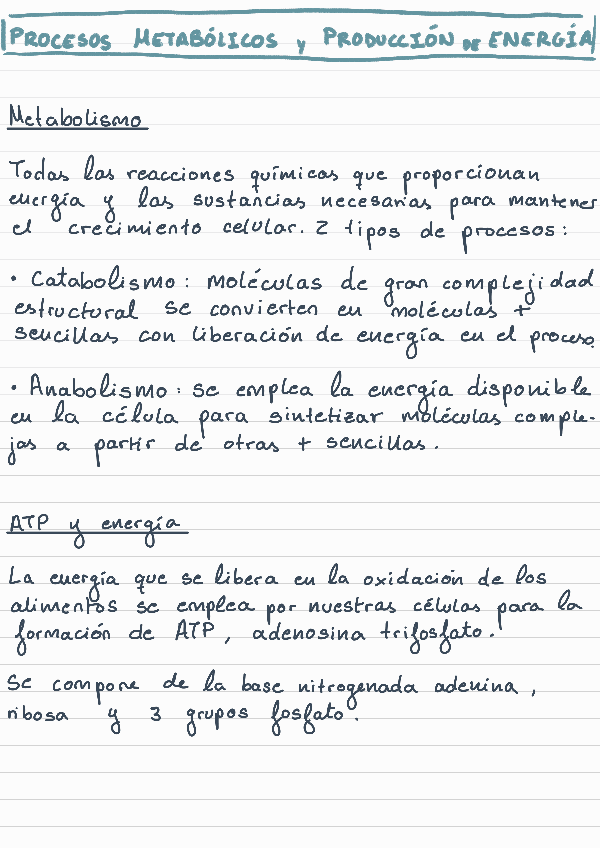 PROCESOS METABÓLICOS y PRODUCCIÓN DE ENERGÍA
Metabolismo
Todas las reacciones químicas que proporcionan
energía y las sustancias necesarias para mantener
el crecimiento celular. 2 tipos de procesos:
• Catabolismo: moléculas de gran complejidad
estructural se convierten en moléculas +
sencillas con liberación de energía en el proceso.
• Anabolismo: se emplea la energía disponible
en la célula para sintetizar moléculas comple-
jas a partir de otras + sencillas.
ATP y energía
La energía que se libera en la oxidación de los
alimentos se emplea por nuestras células para la
formación de ATP, adenosina trifosfato.
Se compone de la base nitrogenada adenina,
ribosa y 3 grupos fosfato.